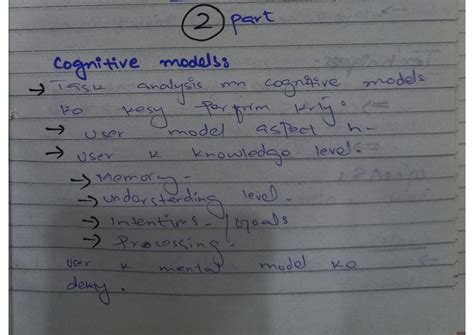 2 part
Cognitive models:
→ Task analysis mn cognitive models
ko kesy perform krty.
→ user model aspect h-
→ user k knowledge level.
→ Memory-
→ understanding level.
→ Intentions- / goals
→ Processing.
user k mental model ko
dekty.